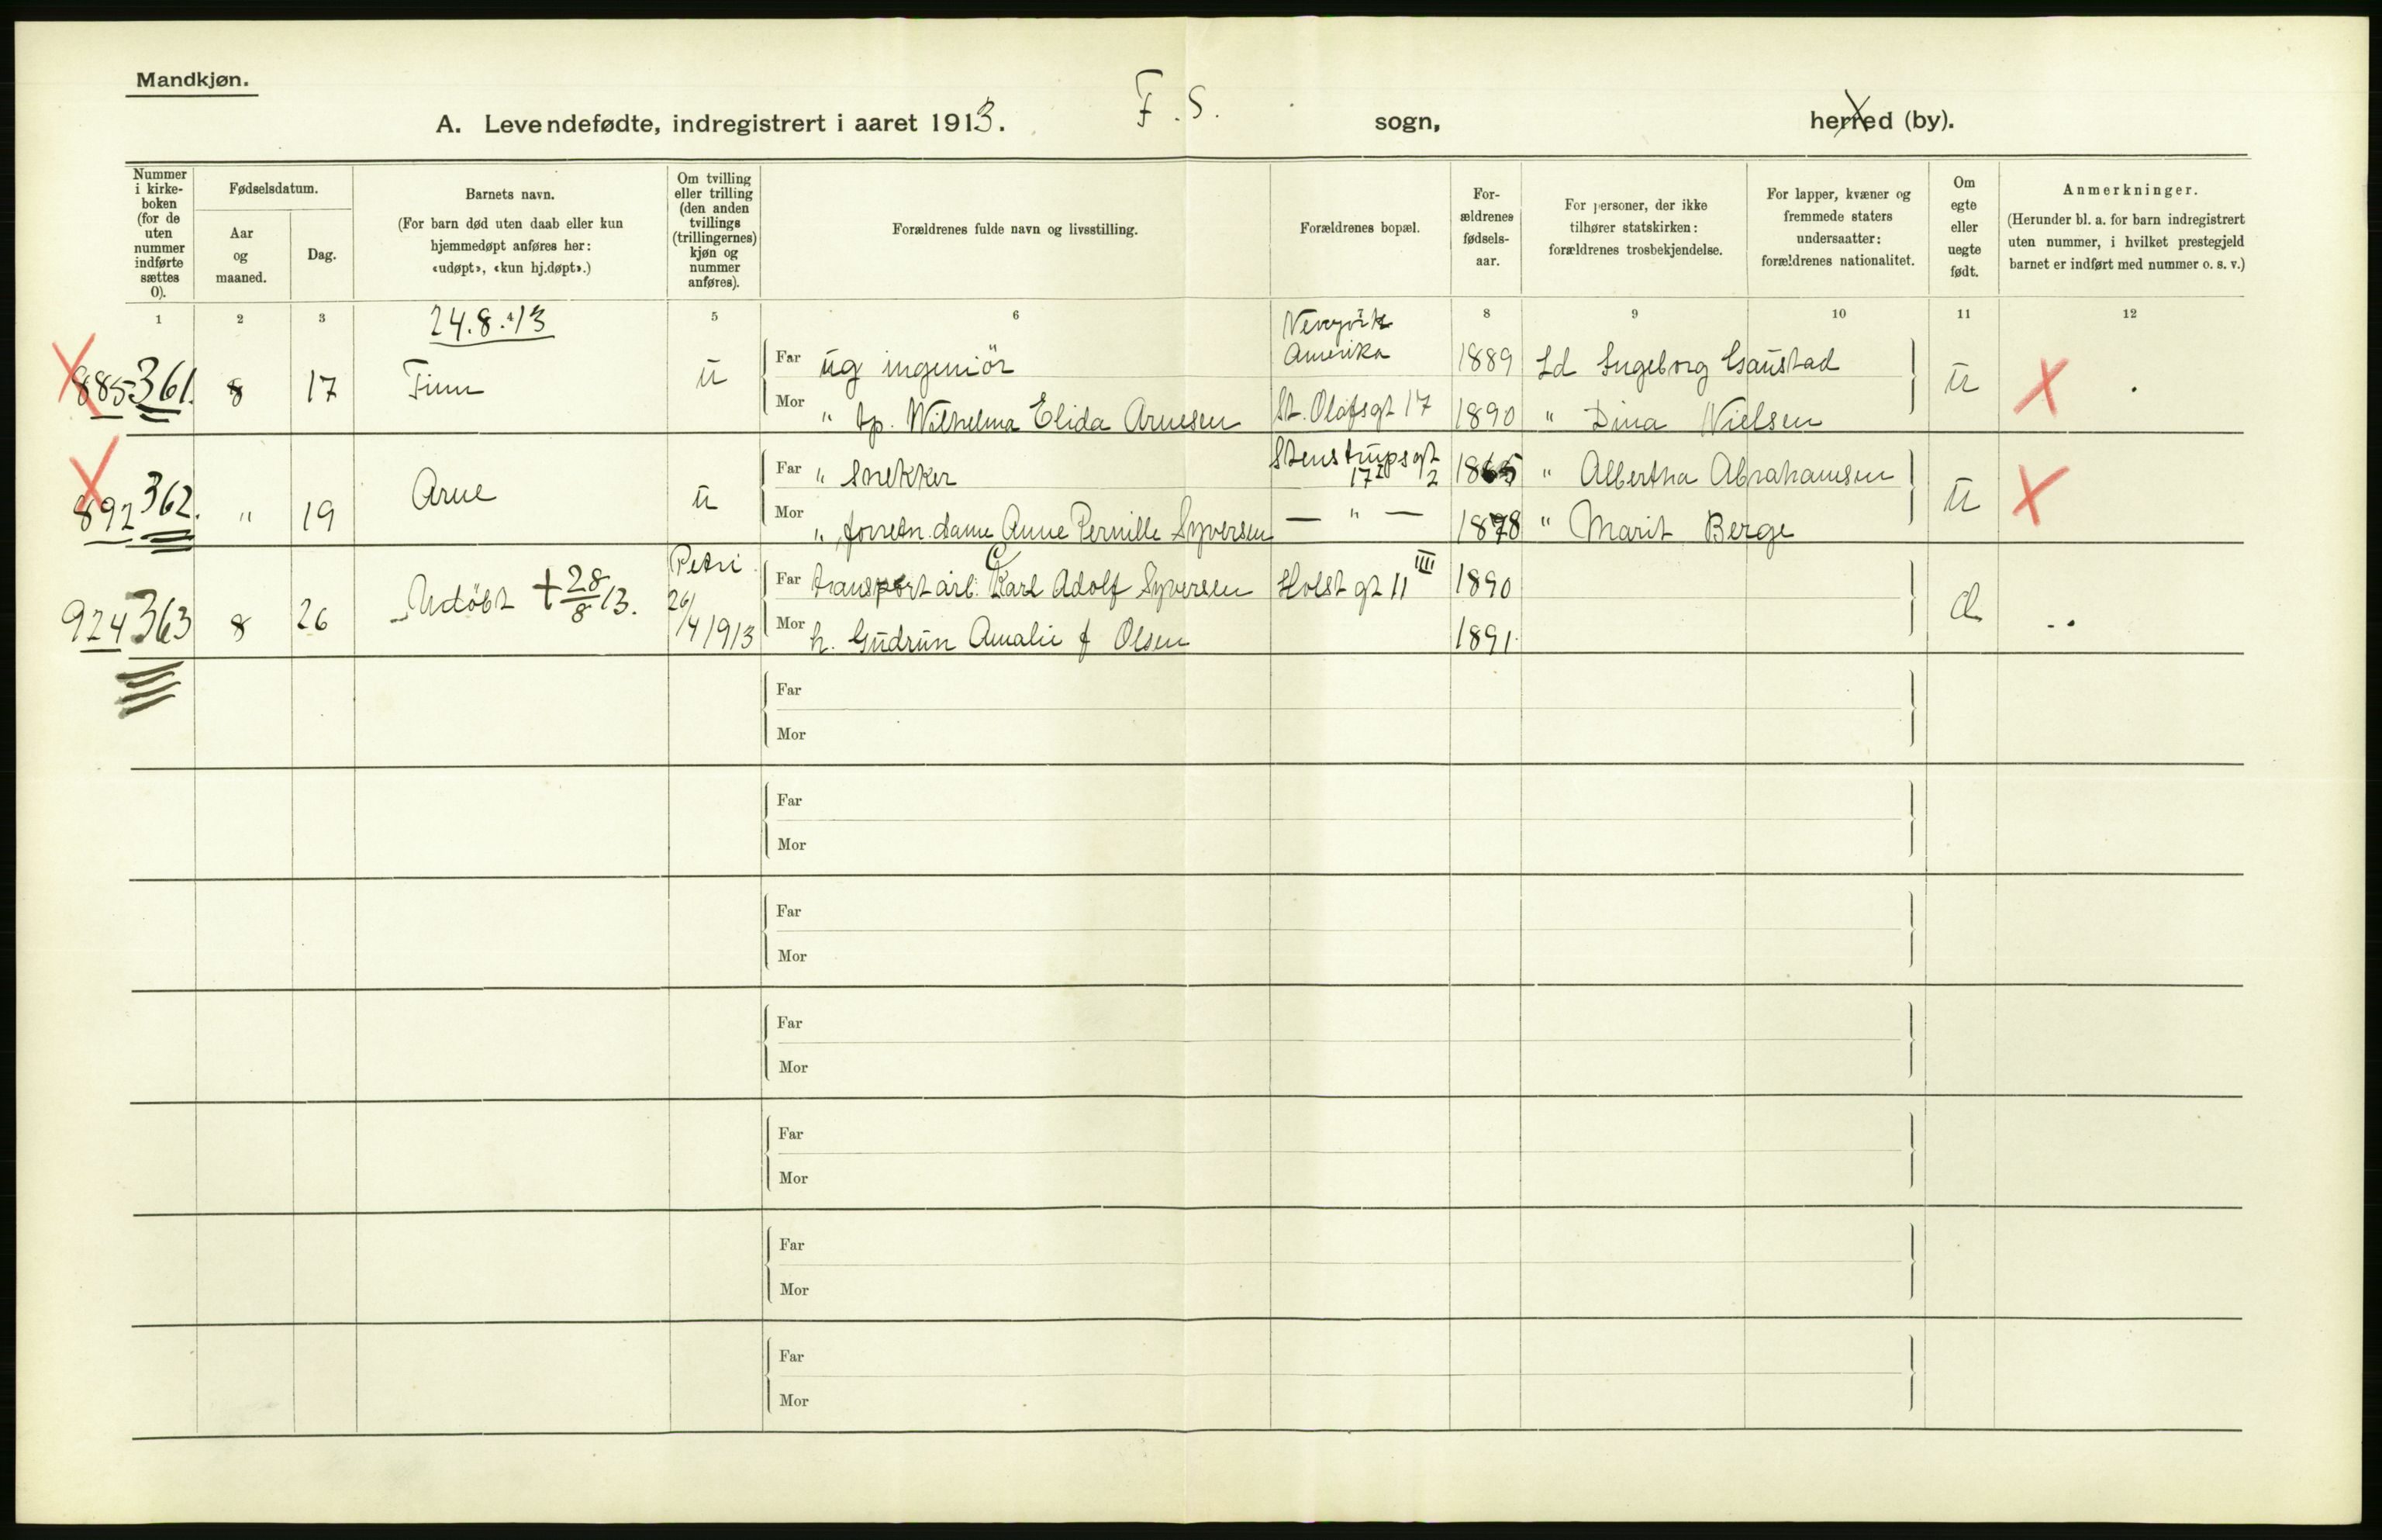 Mandkjøn.
A. Levendefødte, indregistrert i aaret 1913. F. S. sogn, herred (by).
Nummer i kirkeboken (for de uten nummer indførte sættes 0).
Fødselsdatum.
Aar og maaned.
Dag.
Barnets navn.
(For barn død uten daab eller kun hjemmedøpt anføres her: «udøpt», «kun hj.døpt».)
Om tvilling eller trilling (den anden tvillings (trillingernes) kjøn og nummer anføres).
Forældrenes fulde navn og livsstilling.
Forældrenes bopæl.
Forældrenes fødselsaar.
For personer, der ikke tilhører statskirken: forældrenes trosbekjendelse.
For lapper, kvæner og fremmede staters undersaatter: forældrenes nationalitet.
Om egte eller uegte født.
Anmerkninger.
(Herunder bl. a. for barn indregistrert uten nummer, i hvilket prestegjeld barnet er indført med nummer o. s. v.)
1 2 3 24.8.13 5 6 8 9 10 11 12
885 361. 8 17 Finn u
Far ug ingeniör Newyork Amerika 1889 Ld Ingeborg Gaustad
Mor " tp. Wilhelma Elida Arnesen St. Olafsgt 17 1890 " Dina Nielsen u
892 362. " 19 Arne u
Far " Snekker Stenstrupsgt 17 I 2 1865 " Albertha Abrahamsen
Mor " forretn.dame Anne Pernille Syversen — " — 1878 " Marit Berge u
924 363 8 26 Udöbt + 28/8 13. Petri 26/4 1913
Far transport arb: Karl Adolf Syversen Holst gt 11 IIII 1890
Mor h. Gudrun Amalie f Olsen 1891. æ
Far
Mor
Far
Mor
Far
Mor
Far
Mor
Far
Mor
Far
Mor
Far
Mor